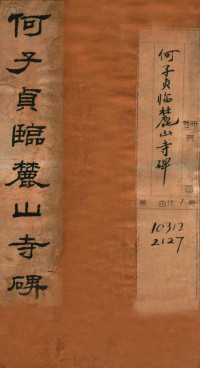 何子貞臨麓山寺碑
何子贞临麓山寺碑
10317
2127